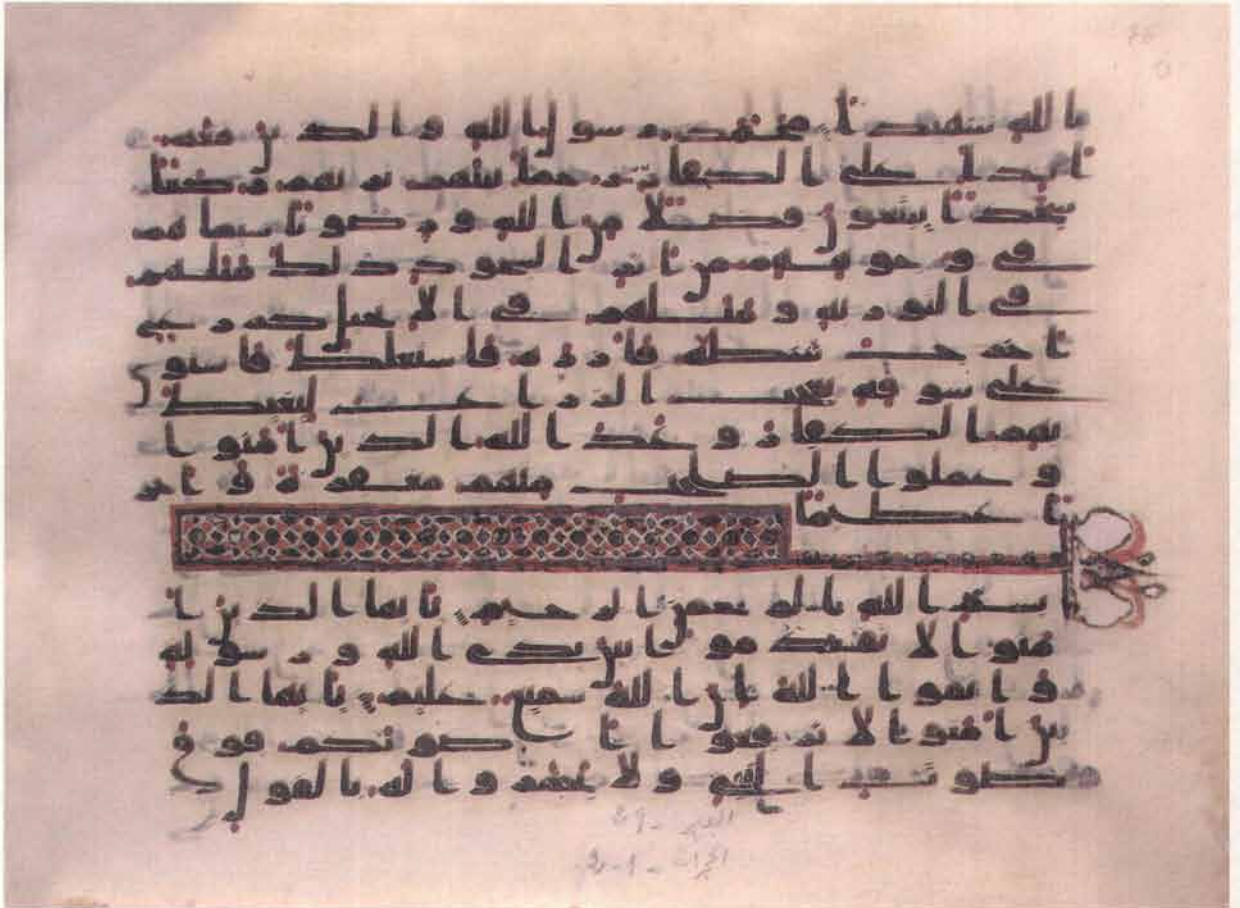 بالله شهيدا محمد رسول الله والذين معه
اشدا على الكفار رحما بينهم تريهم ركعا
سجدا يبتغون فضلا من الله ورضونا سيماهم
في وجوههم من اثر السجود ذلك مثلهم
في التوريه ومثلهم في الانجيل كزرع
اخرج شطه فازره فاستغلظ فاستوى
على سوقه يعجب الزراع ليغيظ
بهم الكفار وعد الله الذين امنوا
وعملوا الصلحت منهم مغفرة واجر
ا عظيما
بسم الله الرحمن الرحيم يايها الذين ا
منوا لا تقدموا بين يدي الله ورسوله
واتقوا الله ان الله سميع عليم يايها الذ
ين امنوا لا ترفعوا اصوتكم فوق
صوت النبي ولا تجهروا له بالقول
الفتح - 29
الحجرات - 1-2